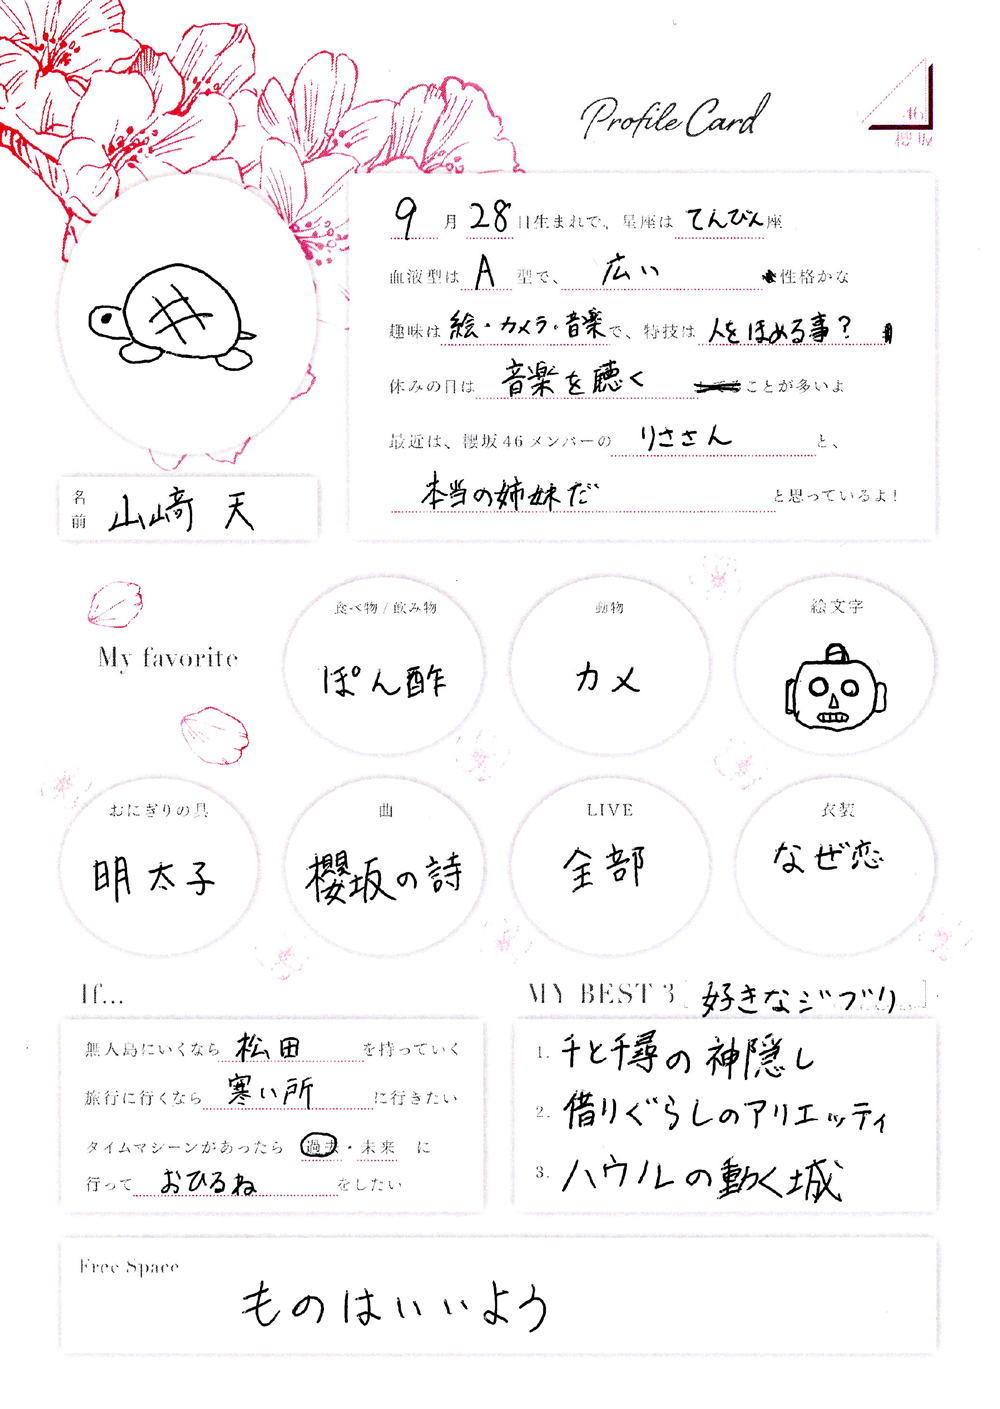 Profile Card
46
櫻坂
9月28日生まれで、星座はてんびん座
血液型はA型で、広い性格かな
趣味は絵・カメラ・音楽で、特技は人をほめる事?
休みの日は音楽を聴くことが多いよ
最近は、櫻坂46メンバーのりささんと、
本当の姉妹だと思っているよ!
名前 山﨑 天
My favorite
食べ物/飲み物
ぽん酢
動物
カメ
絵文字
おにぎりの具
明太子
曲
櫻坂の詩
LIVE
全部
衣装
なぜ恋
If...
無人島にいくなら松田を持っていく
旅行に行くなら寒い所に行きたい
タイムマシーンがあったら 過去・未来 に
行っておひるねをしたい
MY BEST 3 [好きなジブリ]
1. 千と千尋の神隠し
2. 借りぐらしのアリエッティ
3. ハウルの動く城
Free Space
ものはいいよう